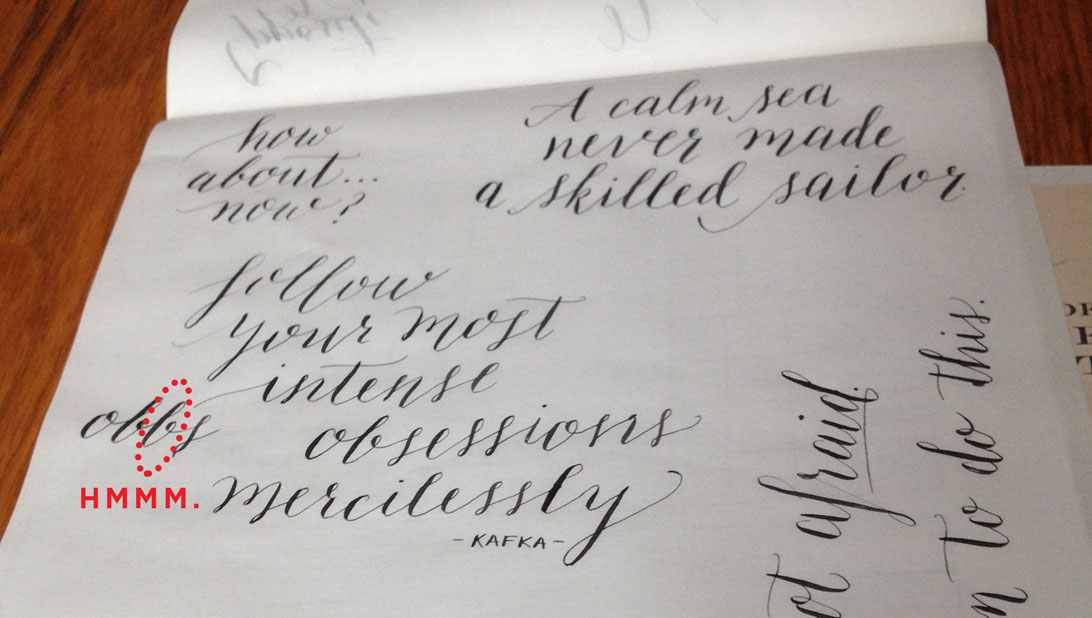 how
about...
now?
A calm sea
never made
a skilled sailor.
follow
your most
intense
obbs obsessions
HMMM. mercilessly
-KAFKA-
afraid.
to do this.